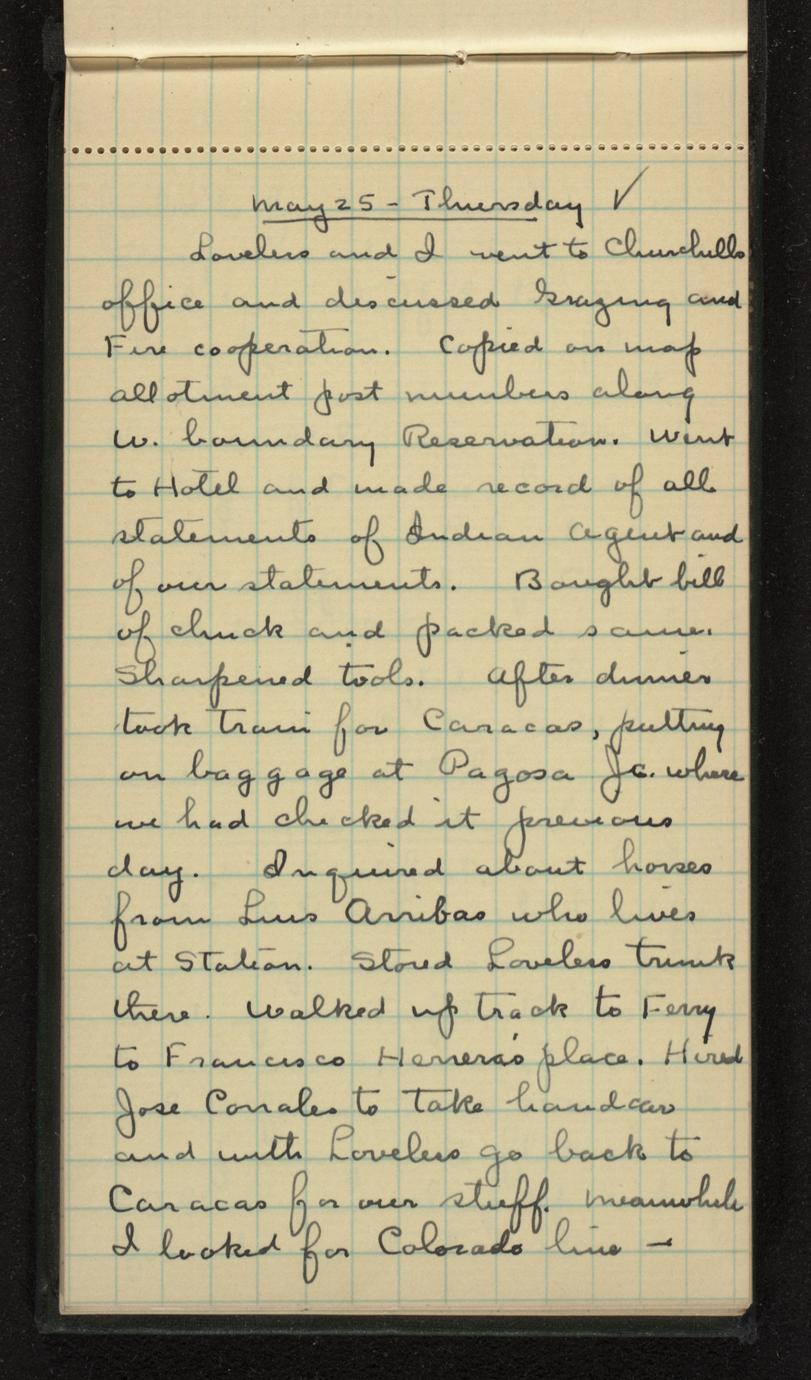 May 25 - Thursday ✓
Loveless and I went to Churchills
office and discussed Grazing and
Fire cooperation. Copied on map
allotment post numbers along
W. boundary Reservation. Went
to Hotel and made record of all
statements of Indian Agent and
of our statements. Bought bill
of chuck and packed same.
Sharpened tools. After dinner
took train for Caracas, putting
on baggage at Pagosa Jc. where
we had checked it previous
day. Inquired about horses
from Luis Arribas who lives
at Station. Stored Loveless trunk
there. Walked up track to Ferry
to Francisco Herrera's place. Hired
Jose Corrales to take handcar
and with Loveless go back to
Caracas for our stuff. Meanwhile
I looked for Colorado line —